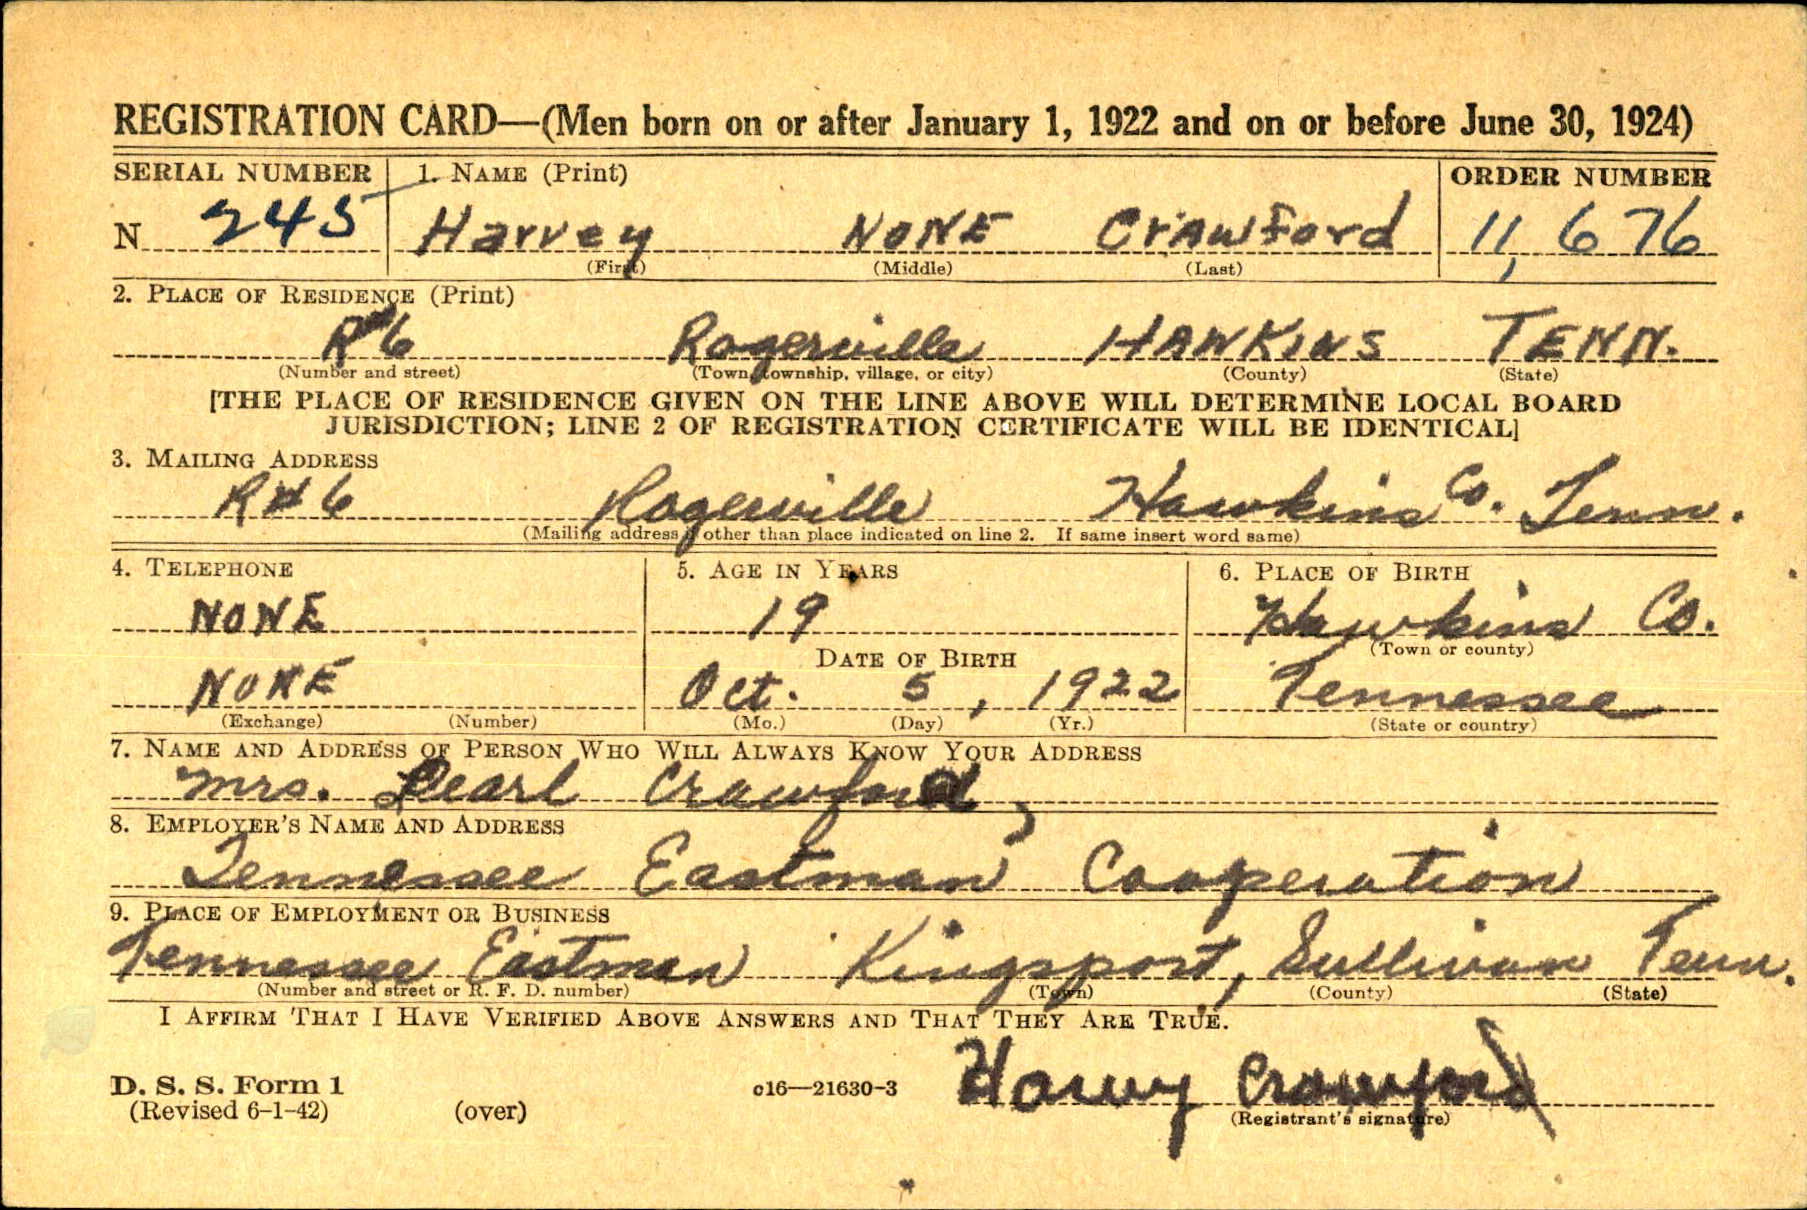 REGISTRATION CARD—(Men born on or after January 1, 1922 and on or before June 30, 1924)
SERIAL NUMBER 1. NAME (Print) ORDER NUMBER
N 245 Harvey NONE Crawford 11,676
(First) (Middle) (Last)
2. PLACE OF RESIDENCE (Print)
R#6 Rogersville HAWKINS TENN.
(Number and street) (Town, township, village, or city) (County) (State)
[THE PLACE OF RESIDENCE GIVEN ON THE LINE ABOVE WILL DETERMINE LOCAL BOARD
JURISDICTION; LINE 2 OF REGISTRATION CERTIFICATE WILL BE IDENTICAL]
3. MAILING ADDRESS
R#6 Rogersville Hawkins Co. Tenn.
(Mailing address if other than place indicated on line 2. If same insert word same)
4. TELEPHONE 5. AGE IN YEARS 6. PLACE OF BIRTH
NONE 19 Hawkins Co.
DATE OF BIRTH (Town or county)
NONE Oct. 5, 1922 Tennessee
(Exchange) (Number) (Mo.) (Day) (Yr.) (State or country)
7. NAME AND ADDRESS OF PERSON WHO WILL ALWAYS KNOW YOUR ADDRESS
Mrs. Pearl Crawford,
8. EMPLOYER'S NAME AND ADDRESS
Tennessee Eastman Cooperation
9. PLACE OF EMPLOYMENT OR BUSINESS
Tennessee Eastman Kingsport, Sullivan Tenn.
(Number and street or R. F. D. number) (Town) (County) (State)
I AFFIRM THAT I HAVE VERIFIED ABOVE ANSWERS AND THAT THEY ARE TRUE.
D. S. S. Form 1 c16—21630-3 Harvey Crawford
(Revised 6-1-42) (over) (Registrant's signature)